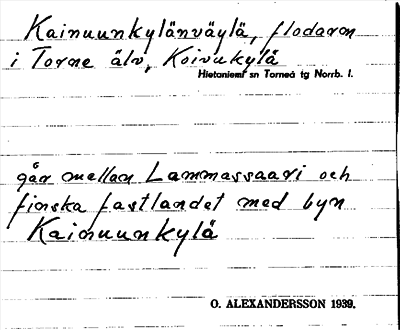 Kainuunkylänväylä, flodarm
i Torne älv, Koivukylä
Hietaniemi sn Torneå tg Norrb. l.
går mellan Lammassaari och
finska fastlandet med byn
Kainuunkylä
O. ALEXANDERSSON 1939.